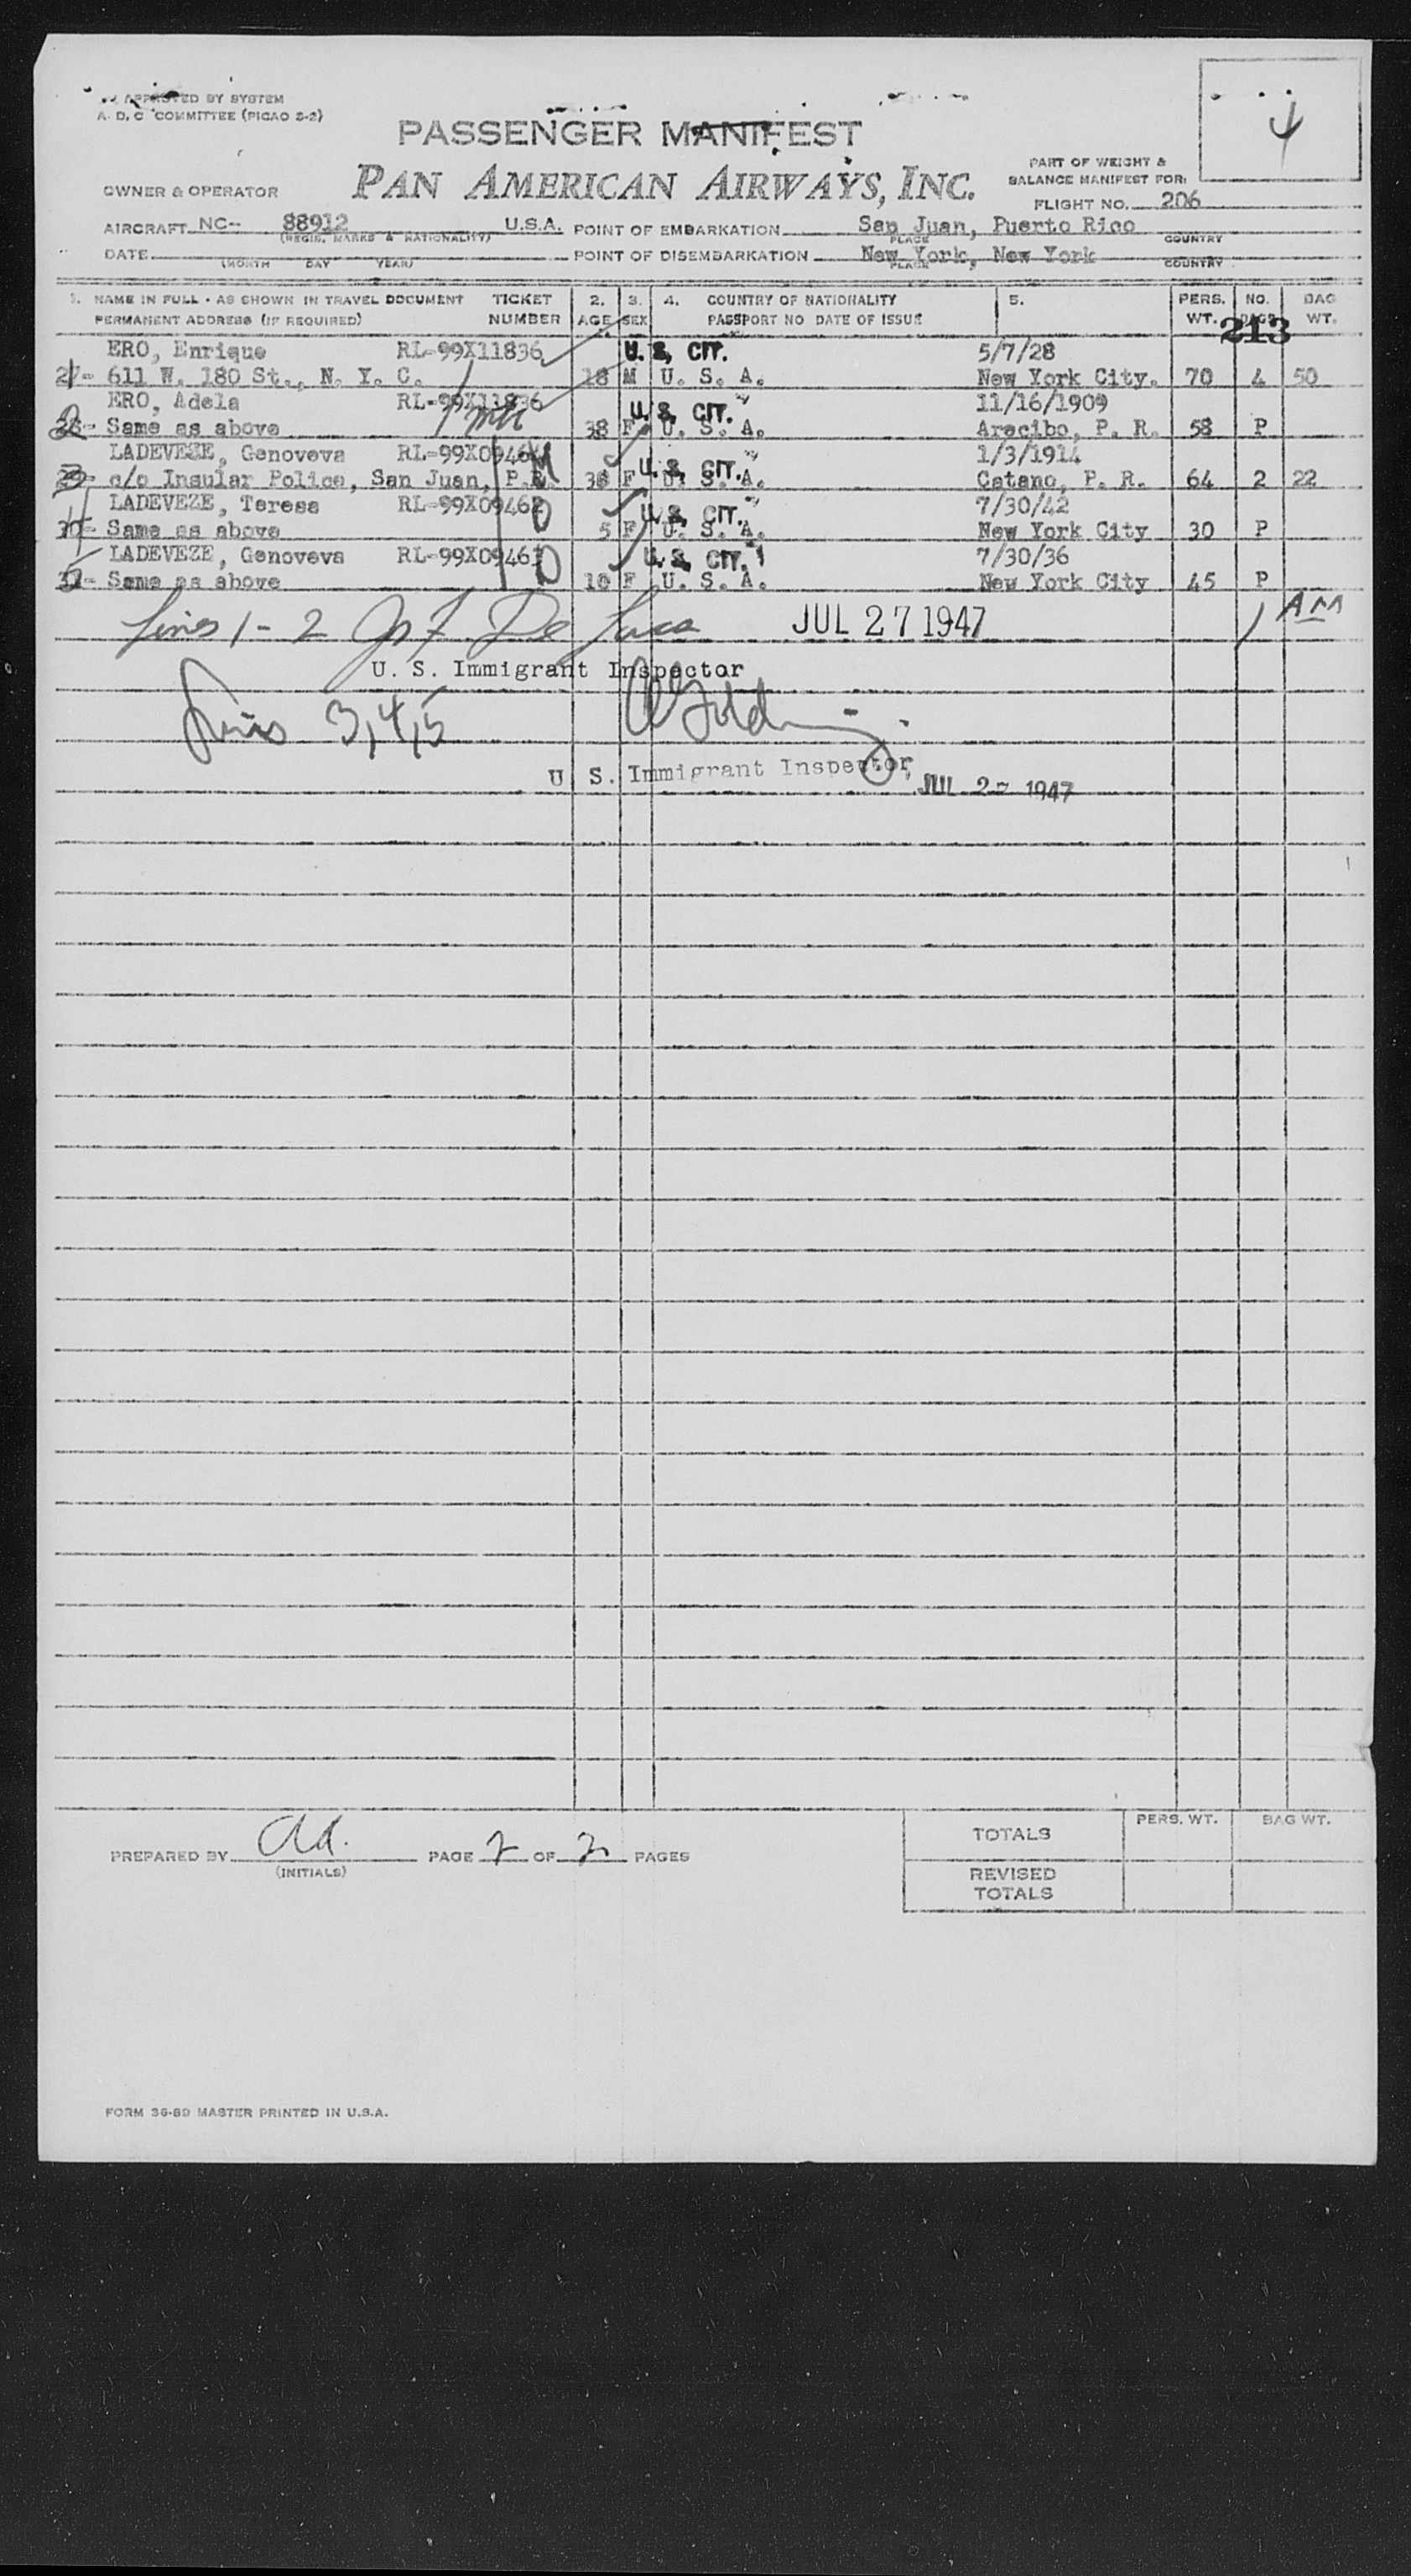 APPROVED BY SYSTEM
A. D. C COMMITTEE (PICAO S-2)
PASSENGER MANIFEST
PAN AMERICAN AIRWAYS, INC.
PART OF WEIGHT &
BALANCE MANIFEST FOR:
OWNER & OPERATOR
FLIGHT NO. 206
AIRCRAFT NC-- 88912 U.S.A. POINT OF EMBARKATION San Juan, Puerto Rico
(REGIS. MARKS & NATIONALITY) PLACE COUNTRY
DATE POINT OF DISEMBARKATION New York, New York
(MONTH DAY YEAR) PLACE COUNTRY
1. NAME IN FULL - AS SHOWN IN TRAVEL DOCUMENT TICKET 2. 3. 4. COUNTRY OF NATIONALITY 5. PERS. NO. BAG
PERMANENT ADDRESS (IF REQUIRED) NUMBER AGE SEX PASSPORT NO DATE OF ISSUE WT. BAGS WT.
213
ERO, Enrique RL-99X11836 U. S. CIT. 5/7/28
1 27- 611 W. 180 St., N. Y. C. 18 M U. S. A. New York City. 70 4 50
ERO, Adela RL-99X11836 U. S. CIT. 11/16/1909
2 28- Same as above 38 F U. S. A. Arecibo, P. R. 58 P
LADEVEZE, Genoveva RL-99X09464 U. S. CIT. 1/3/1914
3 c/o Insular Police, San Juan, P.R. M F U. S. A. Catano, P. R. 64 2 22
LADEVEZE, Teresa RL-99X09462 U. S. CIT. 7/30/42
4 30- Same as above D 5 F U. S. A. New York City 30 P
LADEVEZE, Genoveva RL-99X09461 U. S. CIT. 7/30/36
5 31- Same as above D 10 F U. S. A. New York City 45 P
Lines 1-2 De Luca JUL 27 1947 AM
U. S. Immigrant Inspector
Lines 3,4,5
U S. Immigrant Inspector
JUL 27 1947
TOTALS PERS. WT. BAG WT.
PREPARED BY PAGE 2 OF 2 PAGES
(INITIALS)
REVISED
TOTALS
FORM 36-89 MASTER PRINTED IN U.S.A.